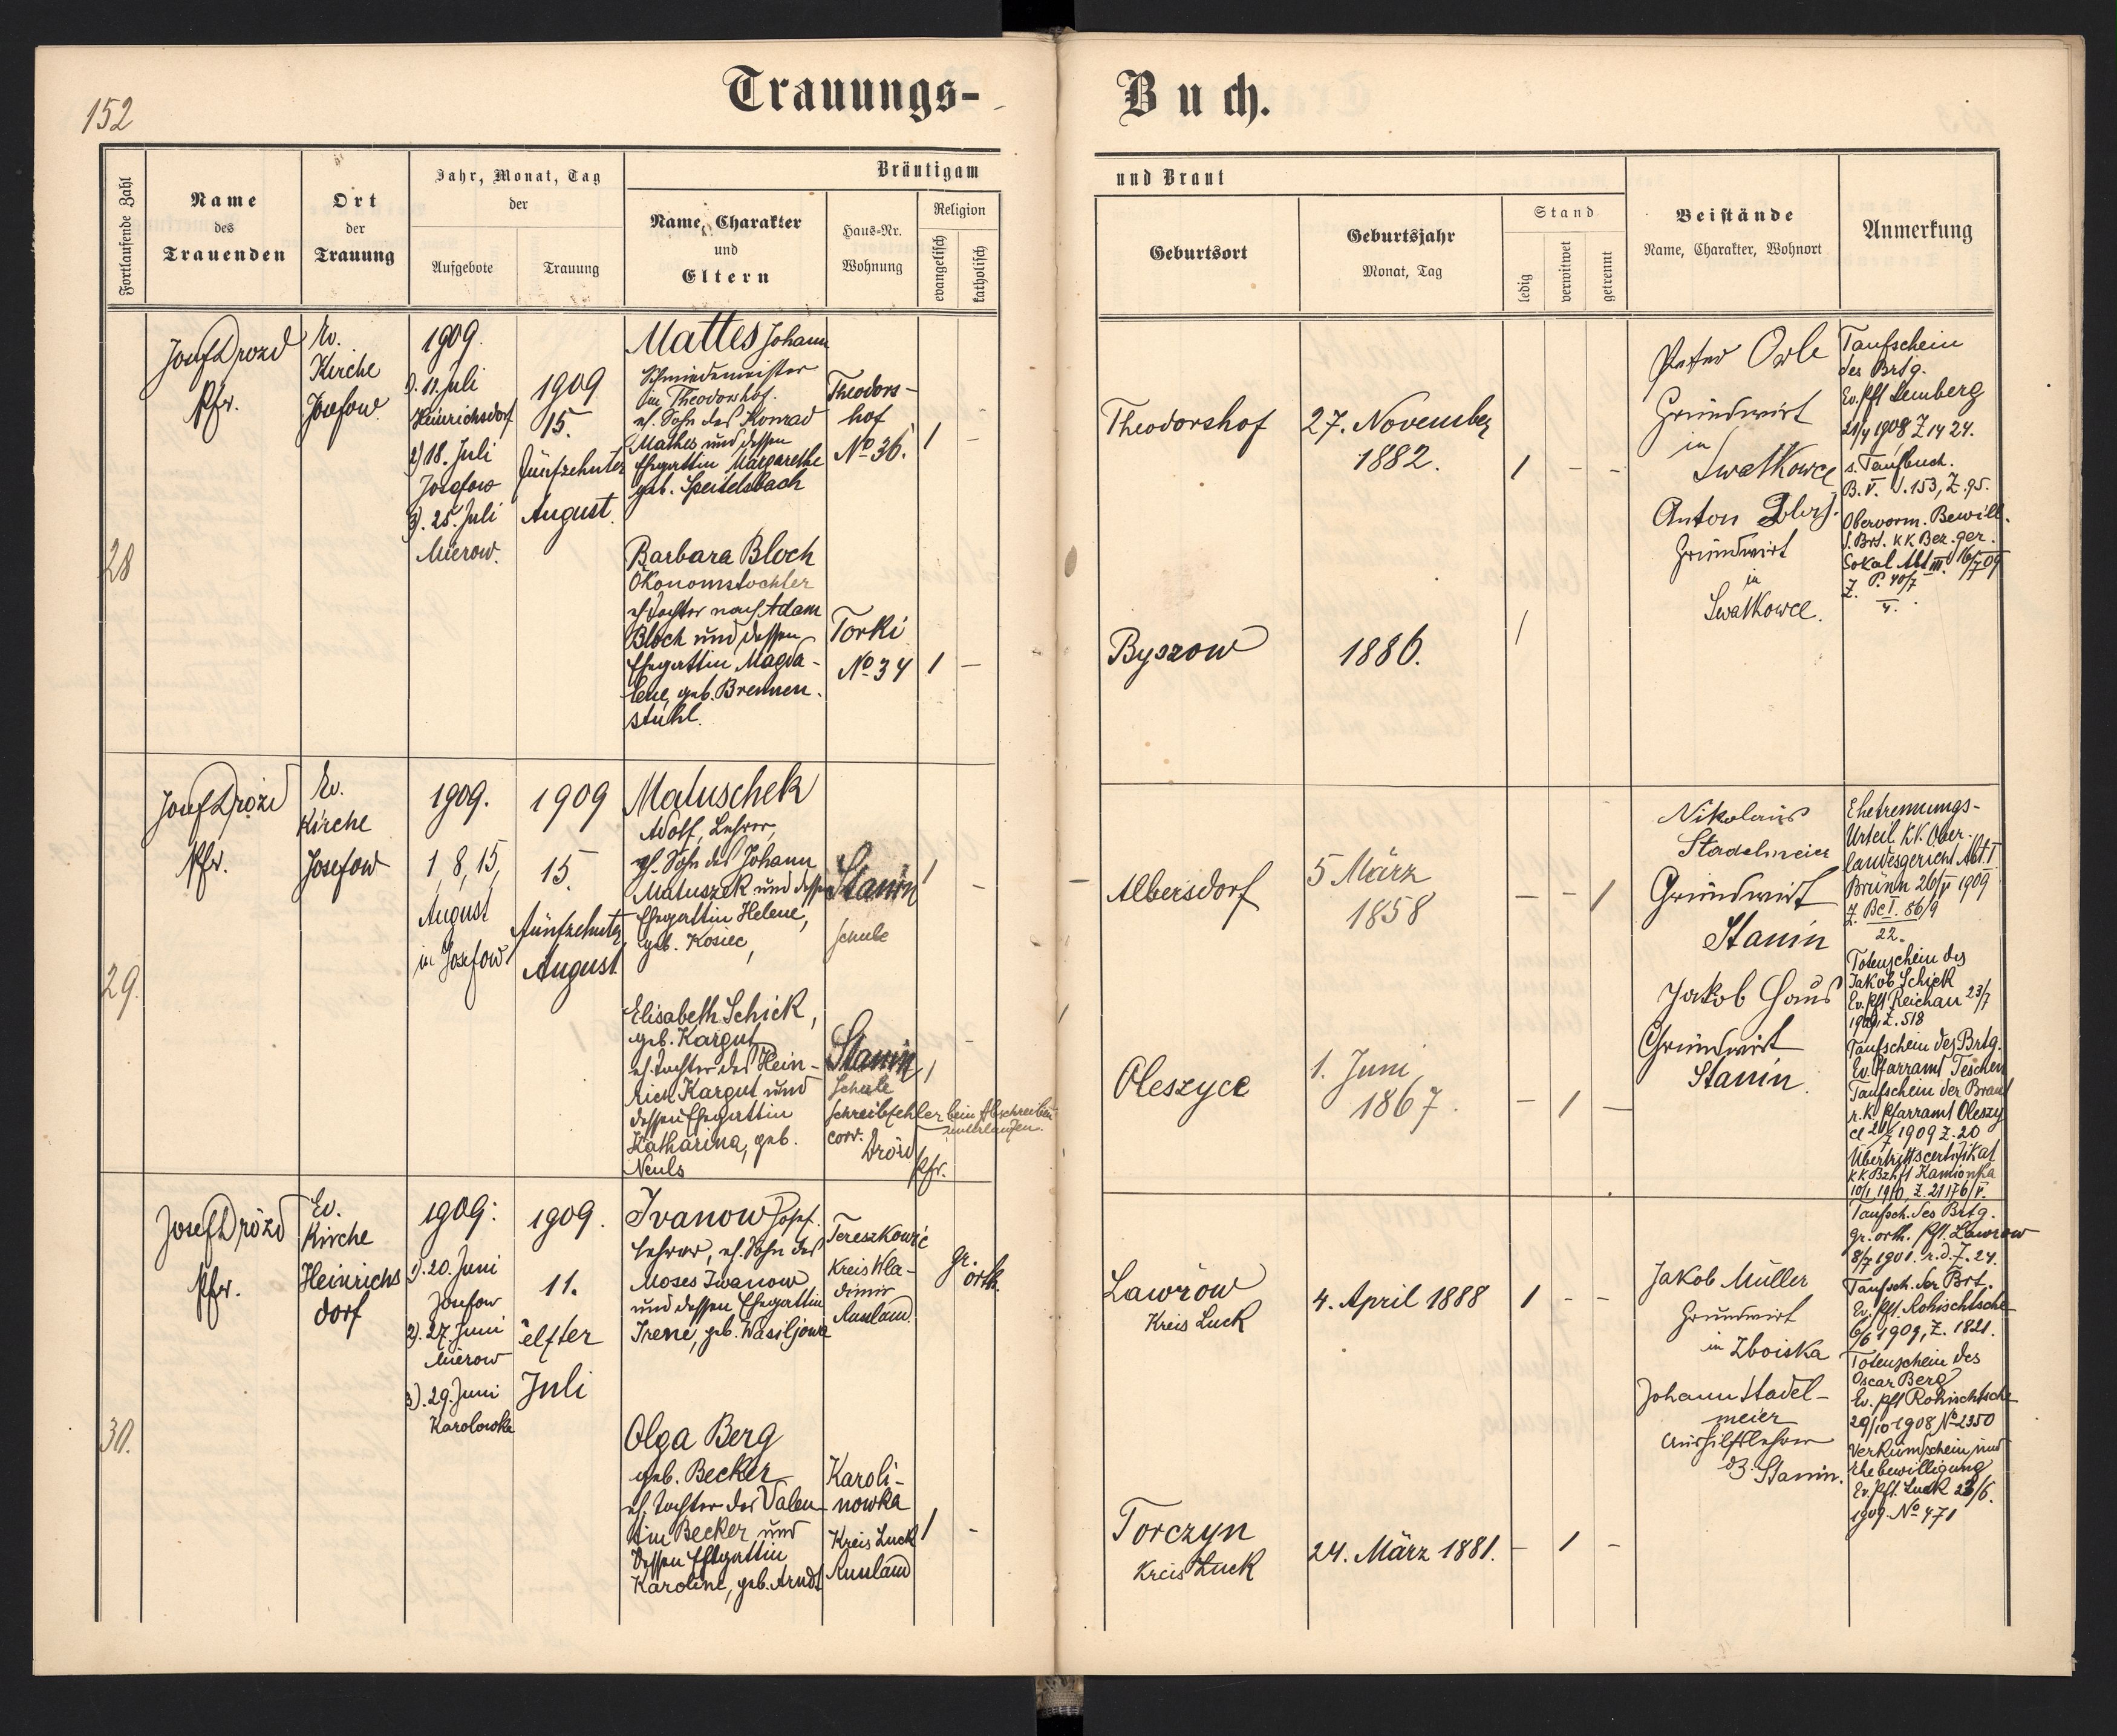 152
Trauungs-
Buch.
Fortlaufende Zahl
Name
des
Trauenden
Ort
der
Trauung
Jahr, Monat, Tag
der
Aufgebote
Trauung
Bräutigam
Name, Charakter
und
Eltern
Haus-Nr.
Wohnung
Religion
evangelisch
katholisch
und Braut
Geburtsort
Geburtsjahr
Monat, Tag
Stand
ledig
verwitwet
getrennt
Beistände
Name, Charakter, Wohnort
Anmerkung
28
Josef Drozd
Pfr.
Ev.
Kirche
Josefow
1909.
1). 11. Juli
Heinrichsdorf
2) 18. Juli
Josefow
3). 25. Juli
Mierow.
1909
15.
Fünfzehnter
August.
Mattes Johann
Schmiedemeister
im Theodorshof.
eh. Sohn des Konrad
Mathes und dessen
Ehegattin Margarethe
geb. Speitelsbach
Theodors-
hof
No 36.
1 -
Theodorshof
27. November
1882.
1 - -
Barbara Bloch
Ökonomstochter
eh. Tochter nach Adam
Bloch und dessen
Ehegattin Magda-
lene, geb. Brennen-
stuhl.
Torki
No 34
1 -
Byszow
1886.
1
Peter
Grundwirt
in
Swatkowce
Anton
Grundwirt
in
Swatkowce.
Taufschein
des Brtg.
Ev. Pft Lemberg
21/4 1908 Z 1424.
s. Taufbuch.
B. V. S. 153, Z. 95.
Obervorm. Bewill.
d. Brt. KK Bez. ger.
Sokal Abt III. 16/7 09
Z. P. 40/7
4.
29.
Josef Drózd
Pfr.
Ev.
Kirche
Josefow
1909.
1, 8, 15,
August
in Josefow
1909
15.
Fünfzehnter
August
Matuschek
Adolf, Lehrer,
eh. Sohn des Johann
Matuszek und dessen
Ehegattin Helene,
geb. Kosiec,
Stanin
Schule
1 -
Albersdorf
5 März
1858
- - 1
Elisabeth Schick,
geb. Kargut
eh. Tochter des Hein-
rich Kargut und
dessen Ehegattin
Katharina, geb.
Neuls
Stanin
Schule
1 -
Schreibfehler beim Abschreiben
unterlaufen.
corr. Drózd
Pfr.
Oleszyce
1. Juni
1867.
- 1 -
Nikolaus
Stadelmeier
Grundwirt
Stanin
Jakob Haus
Grundwirt
Stanin.
Ehetrennungs-
Urteil kk. Ober-
landesgericht Abt. I
Brünn 26/V 1909
Z. Bc I. 86/9
22.
Totenschein des
Jakob Schick
Ev. Pft Reichau 23/7
1909, Z. 518
Taufschein des Brtg.
Ev. Pfarramt Teschen
Taufschein der Braut
r. k. Pfarramt Oleszy
ce 21/7 1909 Z. 20
Übertrittscertifikat
KK Bzhft Kamionka
10/1 1910, Z. 21176/V.
30.
Josef Drózd
Pfr.
Ev.
Kirche
Heinrichs
dorf
1909:
1). 20. Juni
Josefow
2). 27. Juni
Mierow
3). 29. Juni
Karolowka
1909.
11.
elfter
Juli
Ivanow Josef.
Lehrer, eh. Sohn des
Moses Iwanow
und dessen Ehegattin
Irene, geb. Wasiljowa
Tereszkowic
Kreis Wla-
dimir
Russland.
gr.
orth.
Lawrow
Kreis Luck
4. April 1888
1 - -
Olga Berg
geb. Becker
eh. Tochter des Valen-
tin Becker und
dessen Ehegattin
Karoline, geb. Arndt
Karoli-
nowka
Kreis Luck
Russland
1 -
Torczyn
Kreis Luck
24. März 1881.
- 1 -
Jakob Müller
Grundwirt
in Zboiska
Johann Stadel-
meier
Aushilfslehrer
Stanin.
Taufsch. des Brtg.
gr. orth. Pft. Lawrow
8/7 1901. r. d. Z. 24.
Taufsch. der Brt.
Ev. Pft. Rohischtsche
6/6 1909, Z. 1821.
Totenschein des
Oscar Berg
Ev. Pft Rohischtsche
29/10 1908 No 2350
Verkündschein und
Ehebewilligung
Ev. Pft. Luck 23/6.
1909. No 471